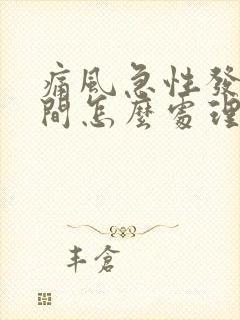 痛風急性發
間怎麼處理
丰倉